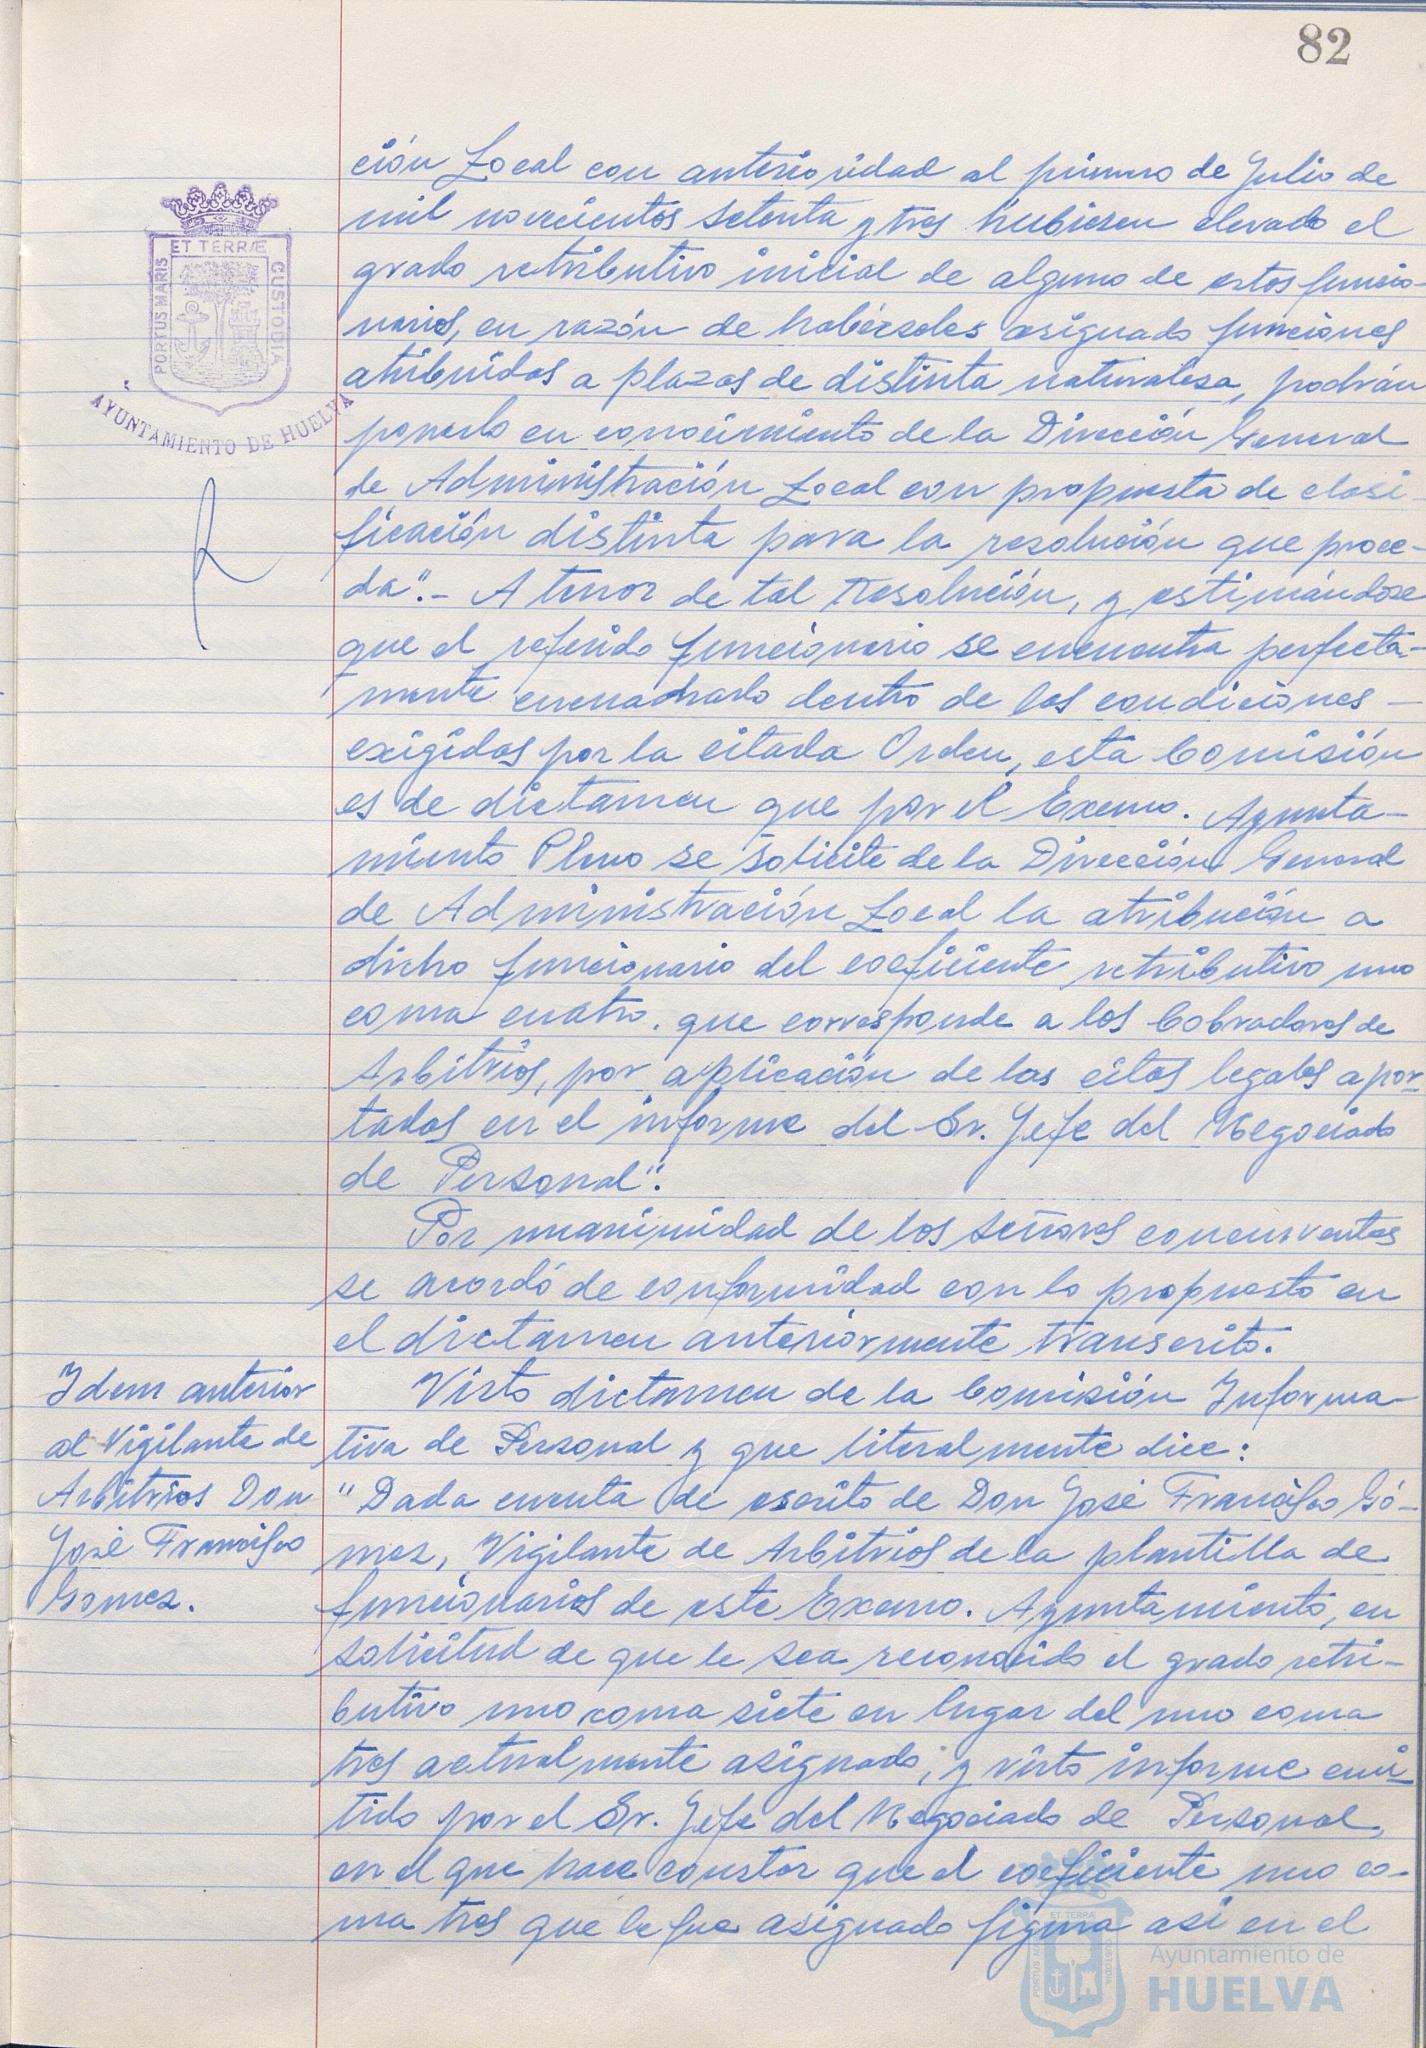 82
ción Local con anterioridad al primero de Julio de
mil novecientos setenta y tres hubiesen elevado el
grado retributivo inicial de alguno de estos funcio-
narios, en razón de habérseles asignado funciones
atribuidas a plazas de distinta naturaleza, podrán
ponerlo en conocimiento de la Dirección General
de Administración Local con propuesta de clasi-
ficación distinta para la resolución que proce-
da".- A tenor de tal Resolución, y estimándose
que el referido funcionario se encuentra perfecta-
mente encuadrado dentro de las condiciones -
exigidas por la citada Orden, esta Comisión
es de dictamen que por el Excmo. Ayunta-
miento Pleno se solicite de la Dirección General
de Administración Local la atribución a
dicho funcionario del coeficiente retributivo uno
coma cuatro. que corresponde a los Cobradores de
Arbitrios, por aplicación de las citas legales apor-
tadas en el informe del Sr. Jefe del Negociado
de Personal".
Por unanimidad de los señores concurrentes
se acordó de conformidad con lo propuesto en
el dictamen anteriormente transcrito.
Idem anterior
al Vigilante de
Arbitrios Don
José Francisco
Gomez.
Visto dictamen de la Comisión Informa-
tiva de Personal y que literalmente dice:
"Dada cuenta de escrito de Don José Francisco Gó-
mez, Vigilante de Arbitrios de la plantilla de
funcionarios de este Excmo. Ayuntamiento, en
solicitud de que le sea reconocido el grado retri-
butivo uno coma siete en lugar del uno coma
tres actualmente asignado, y visto informe emi-
tido por el Sr. Jefe del Negociado de Personal,
en el que hace constar que el coeficiente uno co-
ma tres que le fue asignado figura asi en el
PORTUS MARIS ET TERRÆ CUSTODIA
AYUNTAMIENTO DE HUELVA
Ayuntamiento de
HUELVA